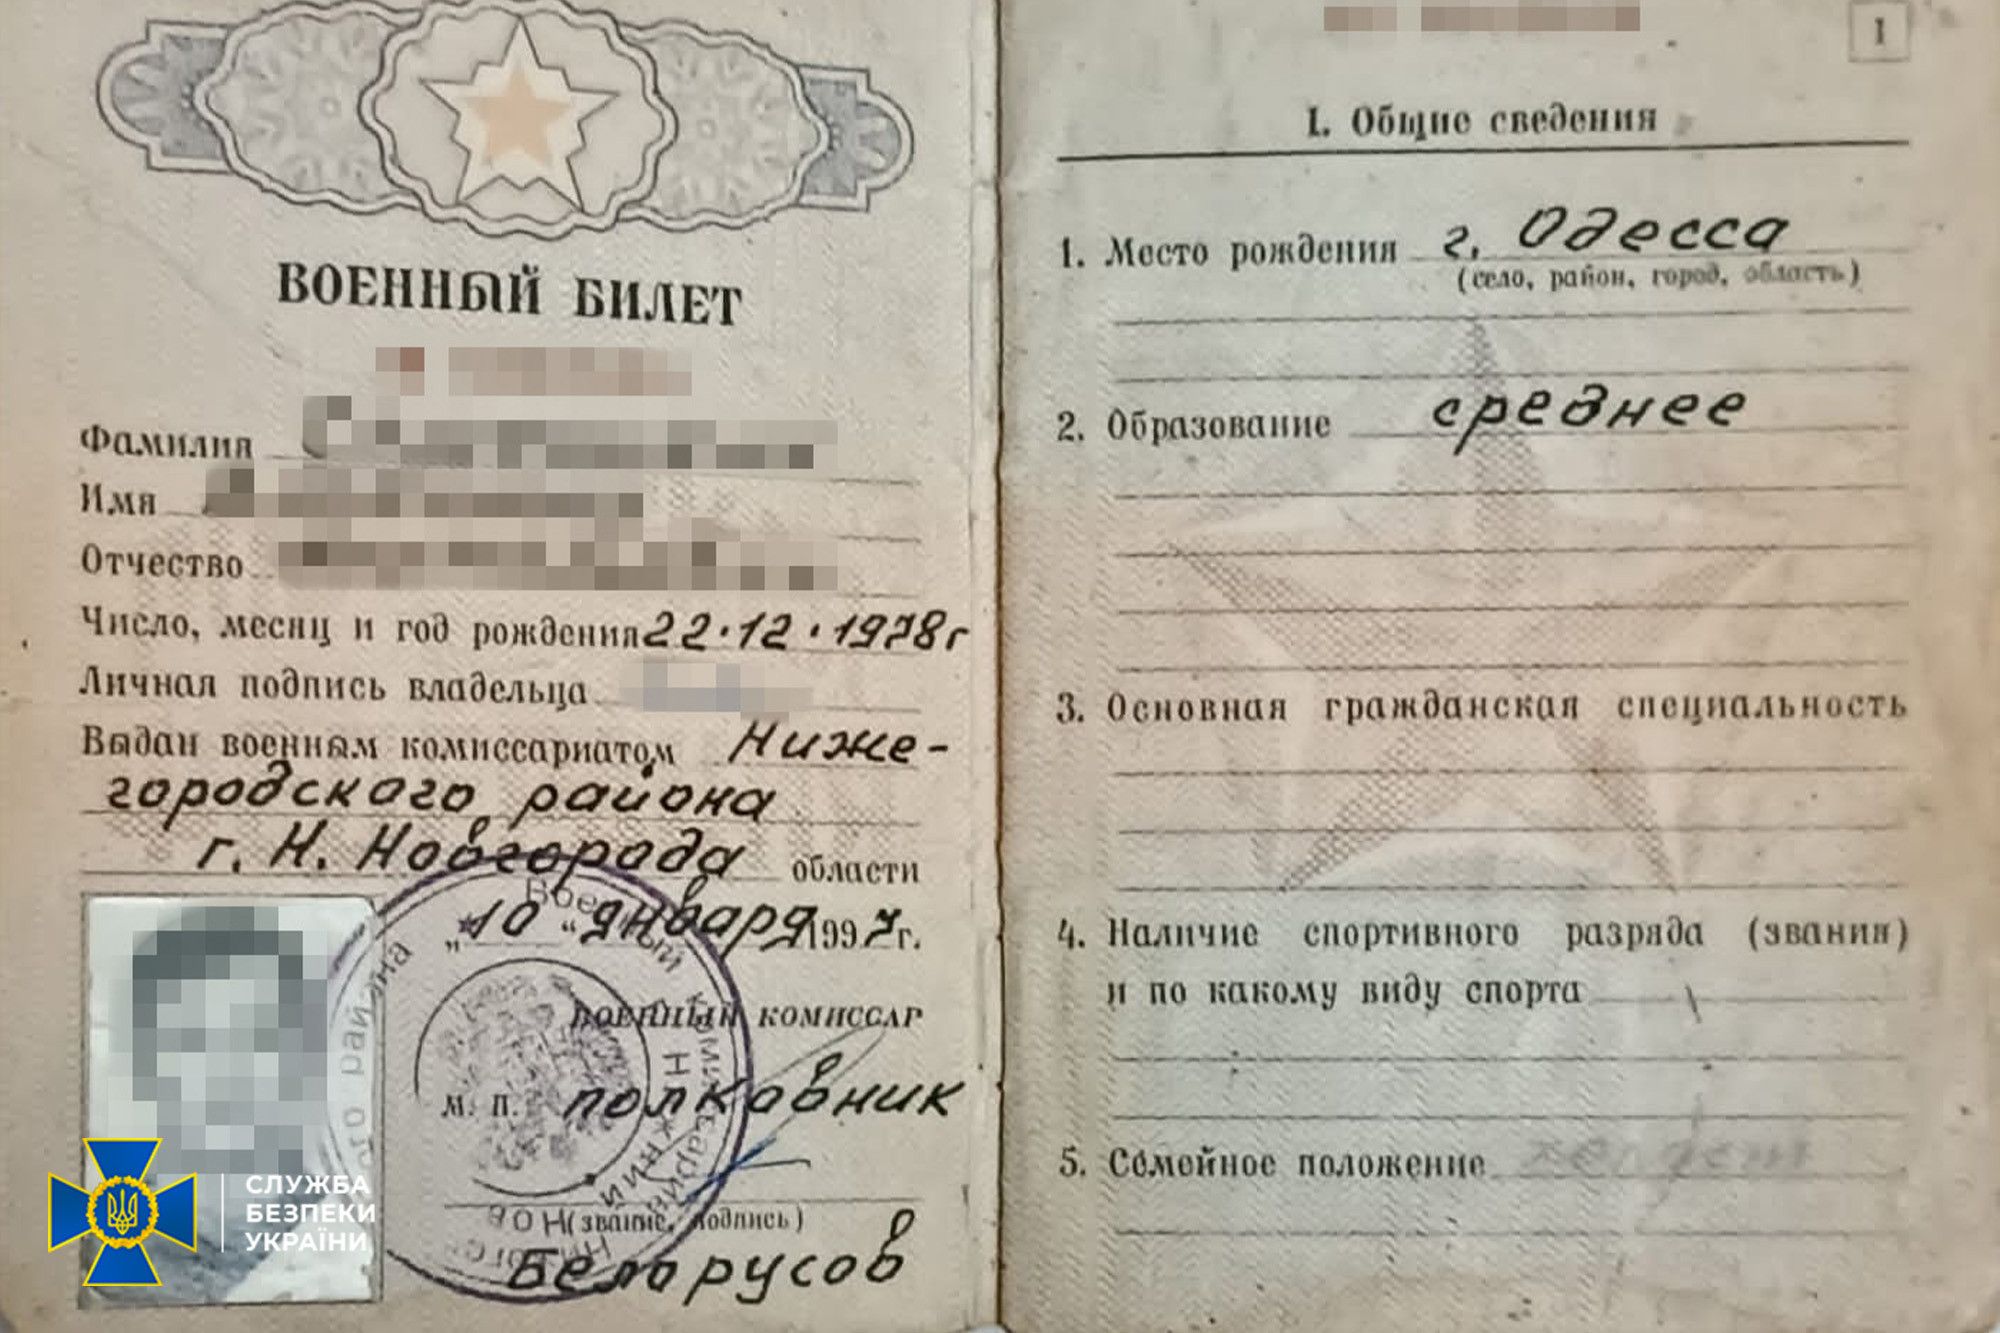 ВОЕННЫЙ БИЛЕТ
Фамилия
Имя
Отчество
Число, месяц и год рождения 22.12.1978г
Личная подпись владельца
Выдан военным комиссариатом Ниже-
городского района
г. Н. Новгорода области
„10“ января 1997г.
ВОЕННЫЙ КОМИССАР
М. П. полковник
(звание, подпись)
Белорусов
Военный комиссариат
района
СЛУЖБА
БЕЗПЕКИ
УКРАЇНИ
1
I. Общие сведения
1. Место рождения г. Одесса
(село, район, город, область)
2. Образование среднее
3. Основная гражданская специальность
4. Наличие спортивного разряда (звания)
и по какому виду спорта
5. Семейное положение